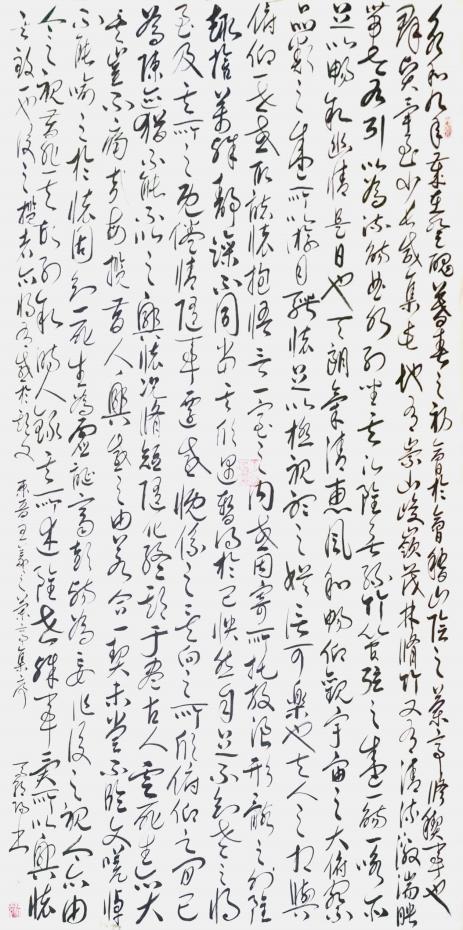 永和九年歲在癸丑暮春之初會於會稽山陰之蘭亭修禊事也
群賢畢至少長咸集此地有崇山峻嶺茂林修竹又有清流激湍映
帶左右引以為流觴曲水列坐其次雖無絲竹管弦之盛一觴一詠亦
足以暢敘幽情是日也天朗氣清惠風和暢仰觀宇宙之大俯察
品類之盛所以遊目騁懷足以極視聽之娛信可樂也夫人之相與
俯仰一世或取諸懷抱悟言一室之內或因寄所託放浪形骸之外雖
趣捨萬殊靜躁不同當其欣遇暫得於己快然自足不知老之將
至及其所之既倦情隨事遷感慨係之矣向之所欣俯仰之間已
為陳跡猶不能不以之興懷況脩短隨化終期于盡古人云死生亦大
矣豈不痛哉每攬昔人興感之由若合一契未嘗不臨文嗟悼
不能喻之於懷固知一死生為虛誕齊彭殤為妄作後之視今亦由
今之視昔悲夫故列敘時人錄其所述雖世殊事異所以興懷
其致一也後之攬者亦將有感於斯文 東晉王羲之蘭亭集序 書